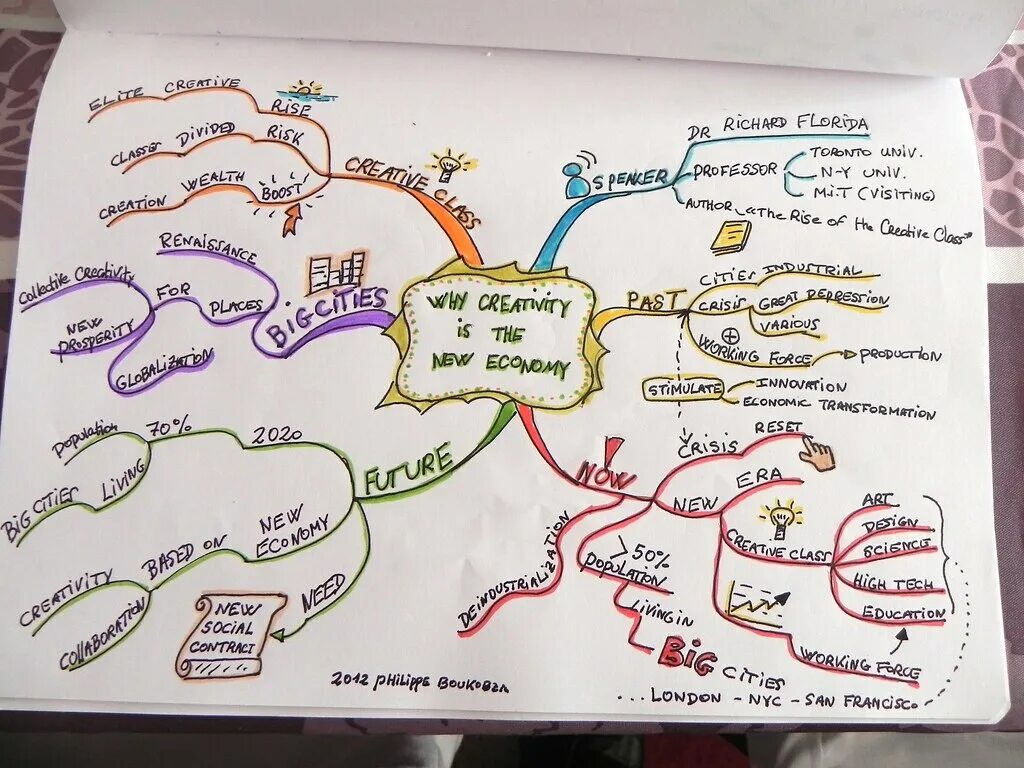 WHY CREATIVITY
IS THE
NEW ECONOMY
SPEAKER
DR RICHARD FLORIDA
PROFESSOR
TORONTO UNIV.
N-Y UNIV.
M.I.T (VISITING)
AUTHOR "The Rise of the Creative Class"
PAST
CITIES INDUSTRIAL
CRISIS GREAT DEPRESSION
VARIOUS
+
WORKING FORCE
PRODUCTION
STIMULATE
INNOVATION
ECONOMIC TRANSFORMATION
NOW
CRISIS
RESET
NEW
ERA
CREATIVE CLASS
ART
DESIGN
SCIENCE
HIGH TECH
EDUCATION
WORKING FORCE
> 50%
POPULATION
LIVING IN
BIG CITIES
... LONDON - NYC - SAN FRANCISCO
DEINDUSTRIALIZATION
FUTURE
2020
70%
Population
LIVING
BIG CITIES
NEW
ECONOMY
BASED ON
CREATIVITY
COLLABORATION
NEED
NEW
SOCIAL
CONTRACT
BIG CITIES
RENAISSANCE
PLACES
FOR
Collective Creativity
NEW
PROSPERITY
GLOBALIZATION
CREATIVE CLASS
RISE
ELITE CREATIVE
RISK
CLASSES DIVIDED
BOOST
WEALTH
CREATION
2012 PHILIPPE BOUKOBZA